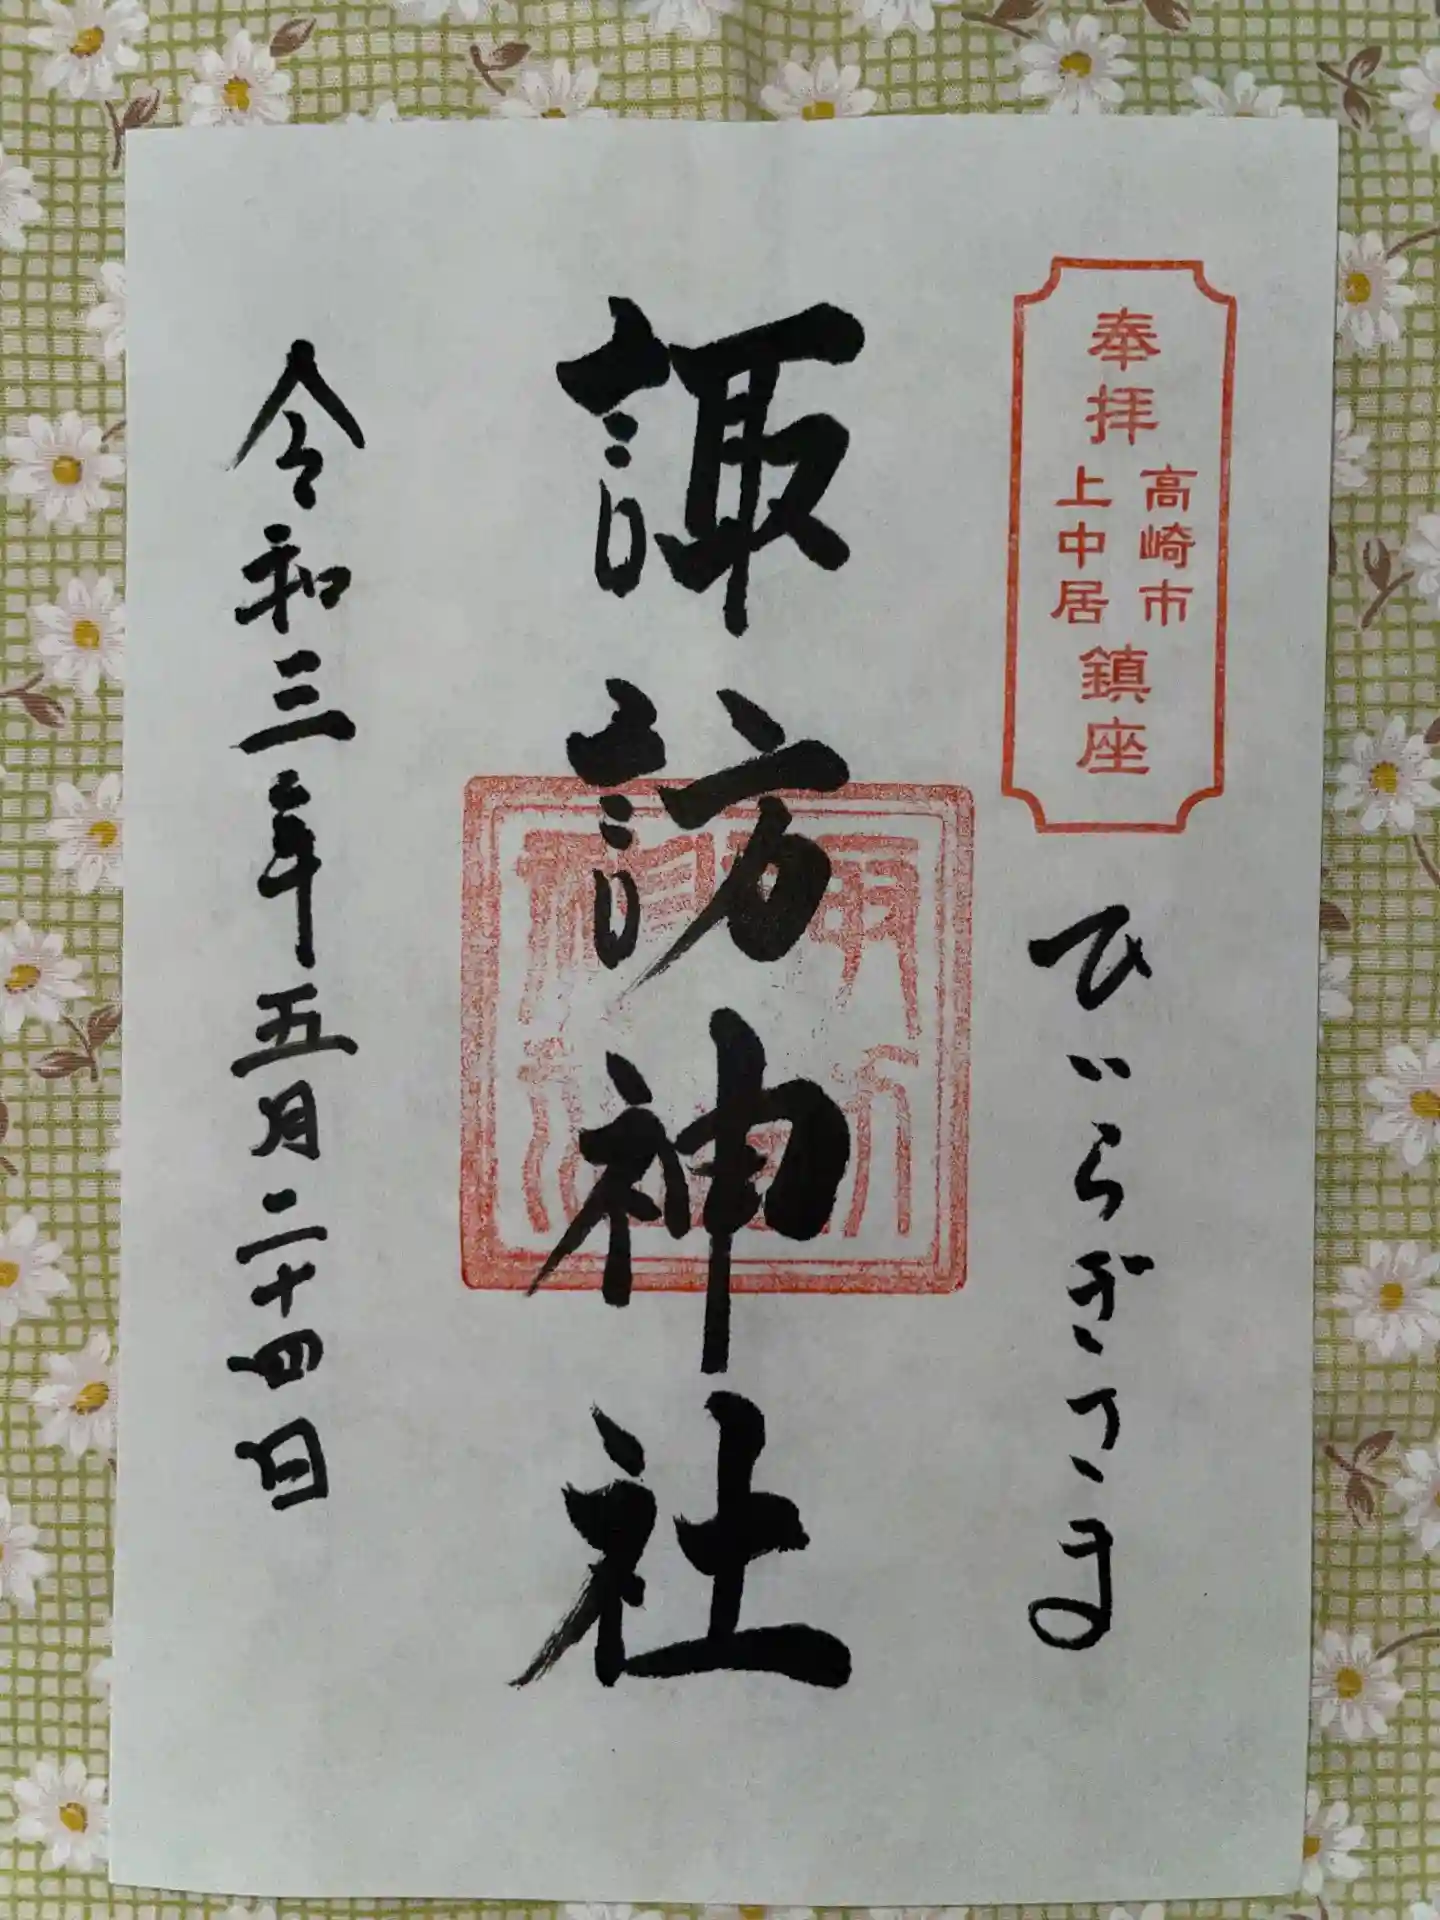 奉拝
高崎市
上中居
鎮座
ひいらぎさま
諏訪神社
令和三年五月二十四日